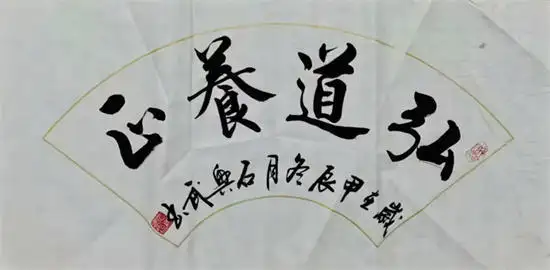 弘道養正
歲在甲辰冬月石興武書